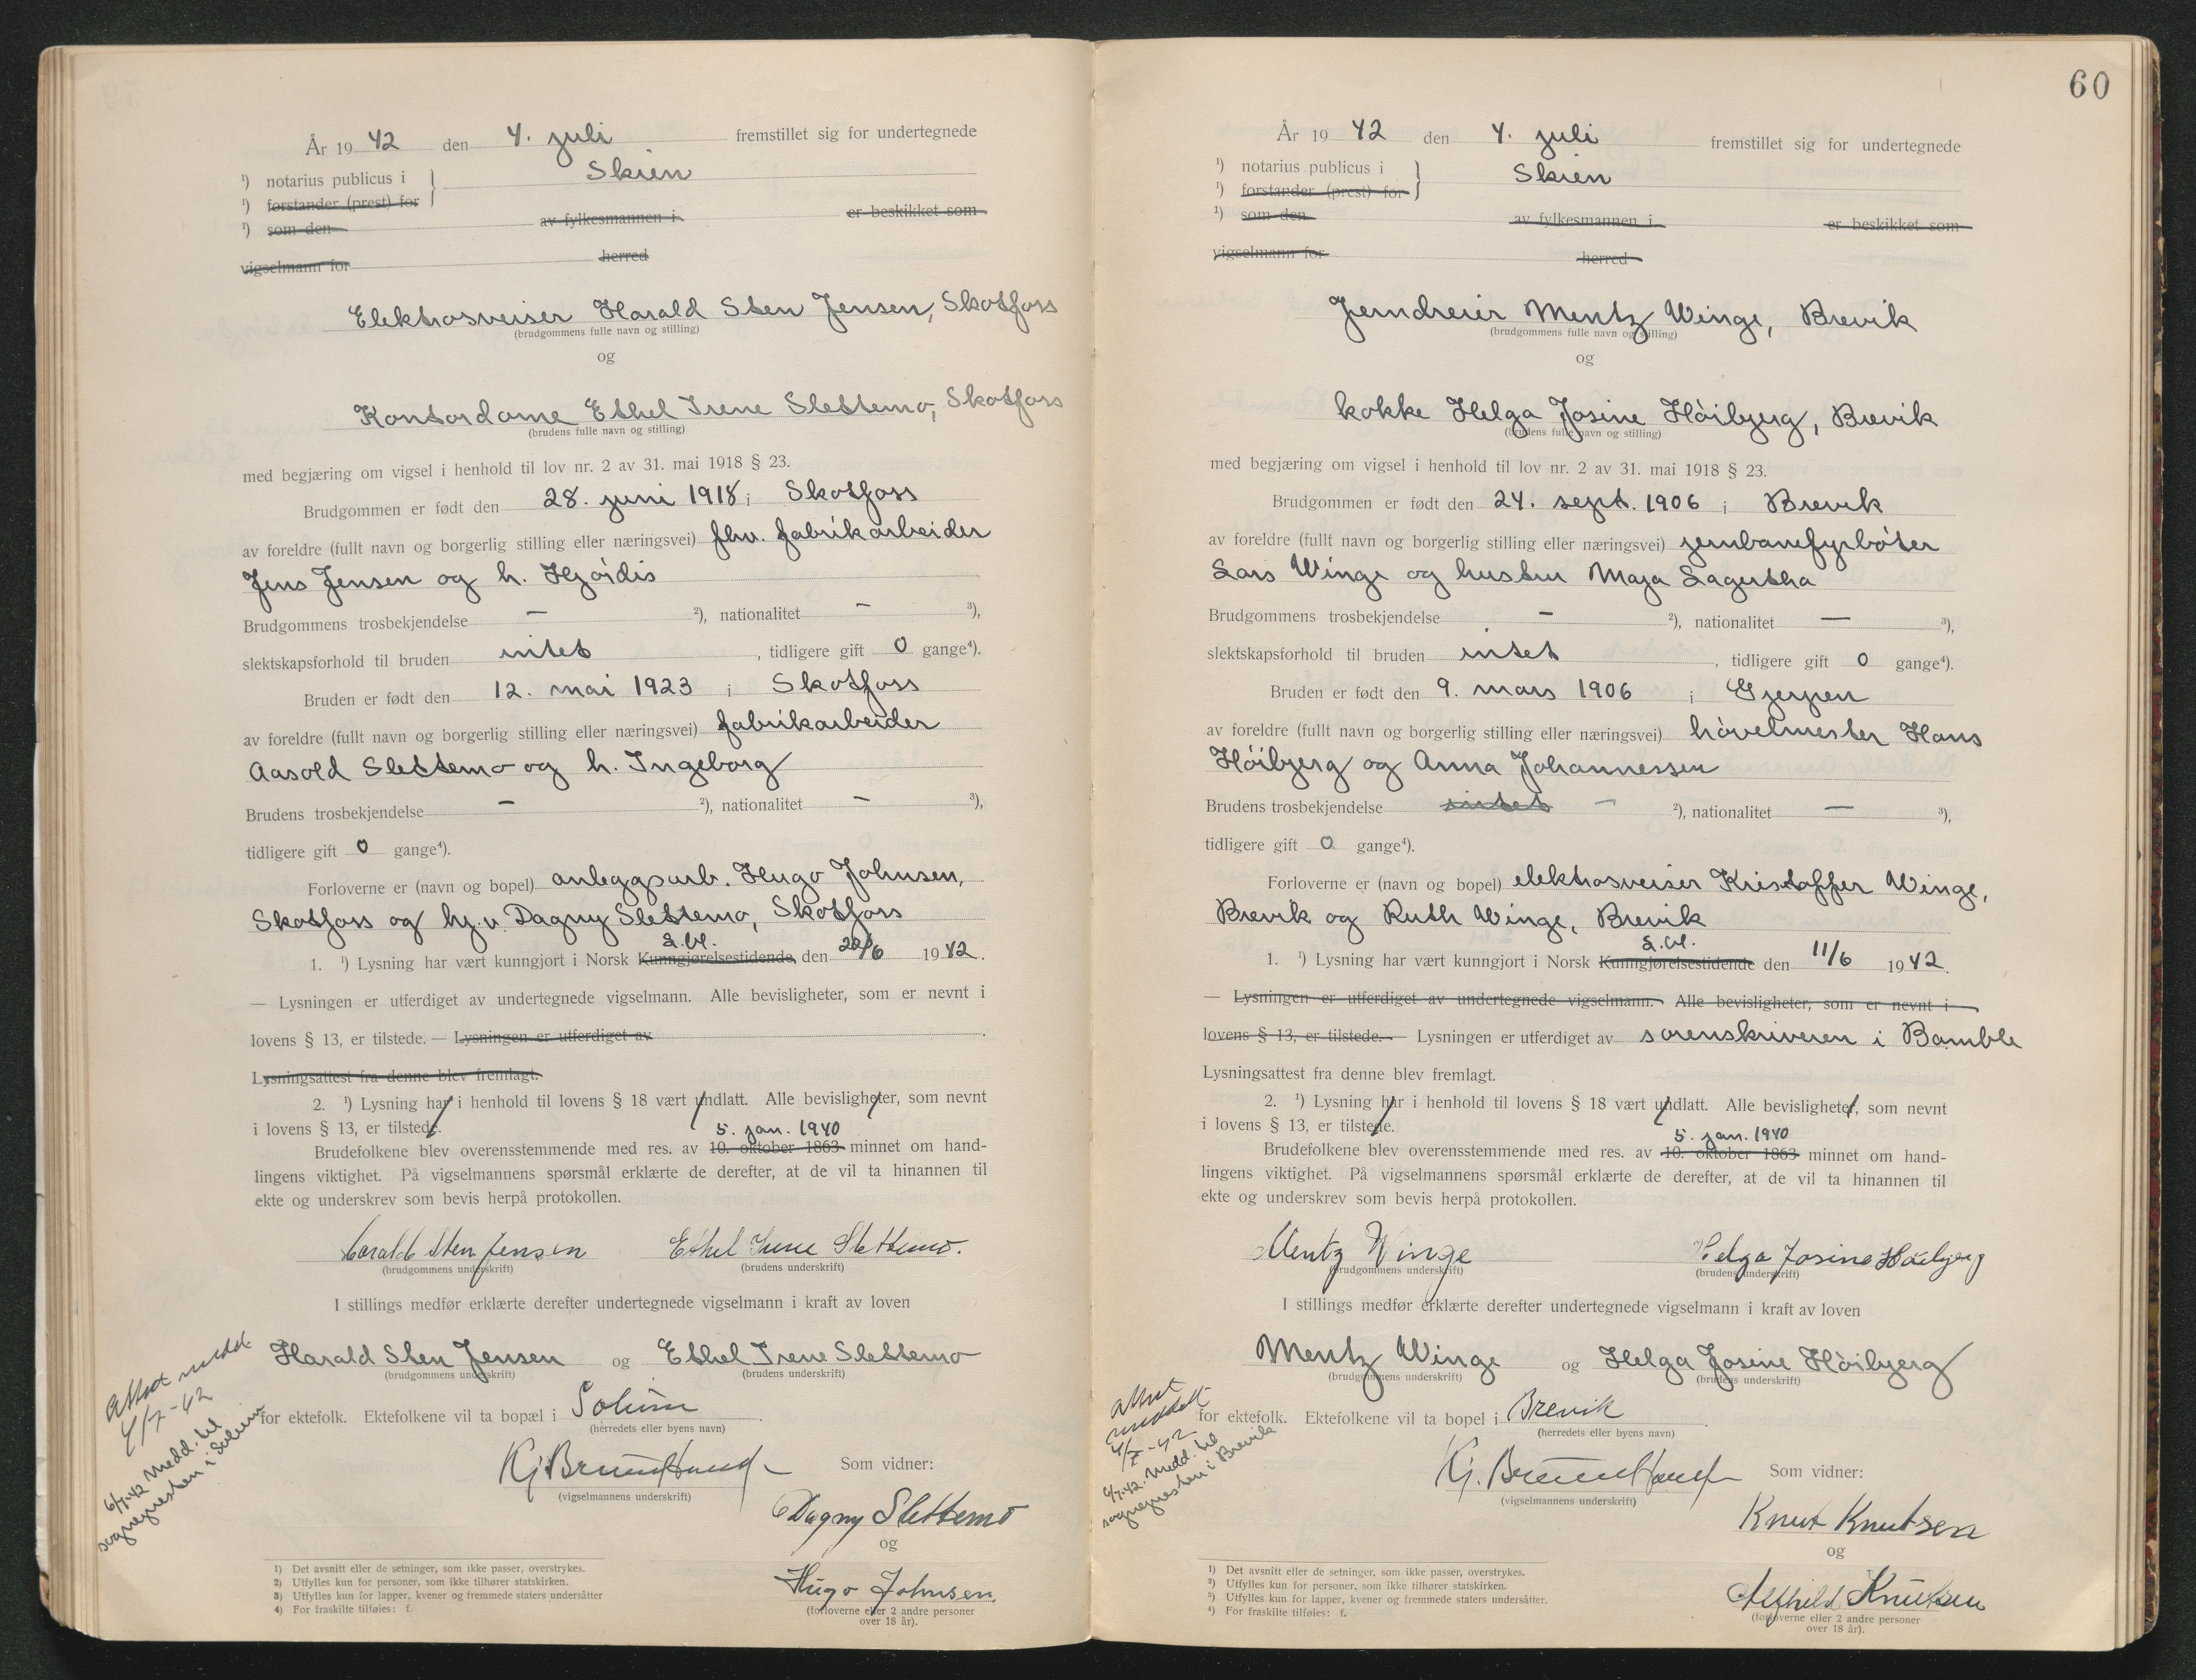 År 1942 den 4. juli fremstillet sig for undertegnede
¹) notarius publicus i Skien
¹) forstander (prest) for
¹) som den av fylkesmannen i er beskikket som
vigselmann for herred
Elektrosveiser Harald Sten Jensen, Skotfoss
(brudgommens fulle navn og stilling)
og
Kontordame Ethel Irene Slettemo, Skotfoss
(brudens fulle navn og stilling)
med begjæring om vigsel i henhold til lov nr. 2 av 31. mai 1918 § 23.
Brudgommen er født den 28. juni 1918 i Skotfoss
av foreldre (fullt navn og borgerlig stilling eller næringsvei) fhv. fabrikarbeider
Jens Jensen og h. Hjørdis
Brudgommens trosbekjendelse — ²), nationalitet — ³),
slektskapsforhold til bruden intet, tidligere gift 0 gange⁴).
Bruden er født den 12. mai 1923 i Skotfoss
av foreldre (fullt navn og borgerlig stilling eller næringsvei) fabrikarbeider
Aasold Slettemo og h. Ingeborg
Brudens trosbekjendelse — ²), nationalitet — ³),
tidligere gift 0 gange⁴).
Forloverne er (navn og bopel) anleggsarb. Hugo Johnsen,
Skotfoss og hj.v. Dagny Slettemo, Skotfoss
1. ¹) Lysning har vært kunngjort i Norsk Kunngjørelsestidende, den 22/6 1942.
— Lysningen er utferdiget av undertegnede vigselmann. Alle bevisligheter, som er nevnt i
lovens § 13, er tilstede. — Lysningen er utferdiget av
Lysningsattest fra denne blev fremlagt.
2. ¹) Lysning har i henhold til lovens § 18 vært undlatt. Alle bevisligheter, som nevnt
i lovens § 13, er tilstede.
5. jan. 1940
Brudefolkene blev overensstemmende med res. av 10. oktober 1863 minnet om hand-
lingens viktighet. På vigselmannens spørsmål erklærte de derefter, at de vil ta hinannen til
ekte og underskrev som bevis herpå protokollen.
Harald Sten Jensen Ethel Irene Slettemo.
(brudgommens underskrift) (brudens underskrift)
I stillings medfør erklærte derefter undertegnede vigselmann i kraft av loven
Harald Sten Jensen og Ethel Irene Slettemo
(brudgommens underskrift) (brudens underskrift)
for ektefolk. Ektefolkene vil ta bopæl i Solum.
(herredets eller byens navn)
Som vidner:
(vigselmannens underskrift)
Dagny Slettemo
og
Hugo Johnsen.
(forloverne eller 2 andre personer
over 18 år).
Attest medd.
4/7-42
6/7-42 Medd. til
sognepresten i Solum
1) Det avsnitt eller de setninger, som ikke passer, overstrykes.
2) Utfylles kun for personer, som ikke tilhører statskirken.
3) Utfylles kun for lapper, kvener og fremmede staters undersåtter
4) For fraskilte tilføies: f.
60
År 1942 den 4. juli fremstillet sig for undertegnede
¹) notarius publicus i Skien
¹) forstander (prest) for
¹) som den av fylkesmannen i er beskikket som
vigselmann for herred
Jerndreier Mentz Winge, Brevik
(brudgommens fulle navn og stilling)
og
kokke Helga Josine Høibjerg, Brevik
(brudens fulle navn og stilling)
med begjæring om vigsel i henhold til lov nr. 2 av 31. mai 1918 § 23.
Brudgommen er født den 24. sept. 1906 i Brevik
av foreldre (fullt navn og borgerlig stilling eller næringsvei) jernbanefyrbøter
Lars Winge og hustru Maja Lagertha
Brudgommens trosbekjendelse — ²), nationalitet — ³),
slektskapsforhold til bruden intet, tidligere gift 0 gange⁴).
Bruden er født den 9. mars 1906 i Gjerpen
av foreldre (fullt navn og borgerlig stilling eller næringsvei) høvelmester Hans
Høibjerg og Anna Johannessen
Brudens trosbekjendelse intet — ²), nationalitet — ³),
tidligere gift 0 gange⁴).
Forloverne er (navn og bopel) elektrosveiser Kristoffer Winge,
Brevik og Ruth Winge, Brevik
1. ¹) Lysning har vært kunngjort i Norsk Kunngjørelsestidende den 11/6 1942.
— Lysningen er utferdiget av undertegnede vigselmann. Alle bevisligheter, som er nevnt i
lovens § 13, er tilstede. — Lysningen er utferdiget av sorenskriveren i Bamble
Lysningsattest fra denne blev fremlagt.
2. ¹) Lysning har i henhold til lovens § 18 vært undlatt. Alle bevisligheter, som nevnt
i lovens § 13, er tilstede.
5. jan. 1940
Brudefolkene blev overensstemmende med res. av 10. oktober 1863 minnet om hand-
lingens viktighet. På vigselmannens spørsmål erklærte de derefter, at de vil ta hinannen til
ekte og underskrev som bevis herpå protokollen.
Mentz Winge Helga Josine Høibjerg
(brudgommens underskrift) (brudens underskrift)
I stillings medfør erklærte derefter undertegnede vigselmann i kraft av loven
Mentz Winge og Helga Josine Høibjerg
(brudgommens underskrift) (brudens underskrift)
for ektefolk. Ektefolkene vil ta bopel i Brevik.
(herredets eller byens navn)
Som vidner:
(vigselmannens underskrift)
Knut Knutsen
og
Knutsen
(forloverne eller 2 andre personer
over 18 år).
Attest
meddelt
4/7-42
6/7-42. Medd. til
sognepresten i Brevik
1) Det avsnitt eller de setninger, som ikke passer, overstrykes.
2) Utfylles kun for personer, som ikke tilhører statskirken.
3) Utfylles kun for lapper, kvener og fremmede staters undersåtter.
4) For fraskilte tilføies: f.